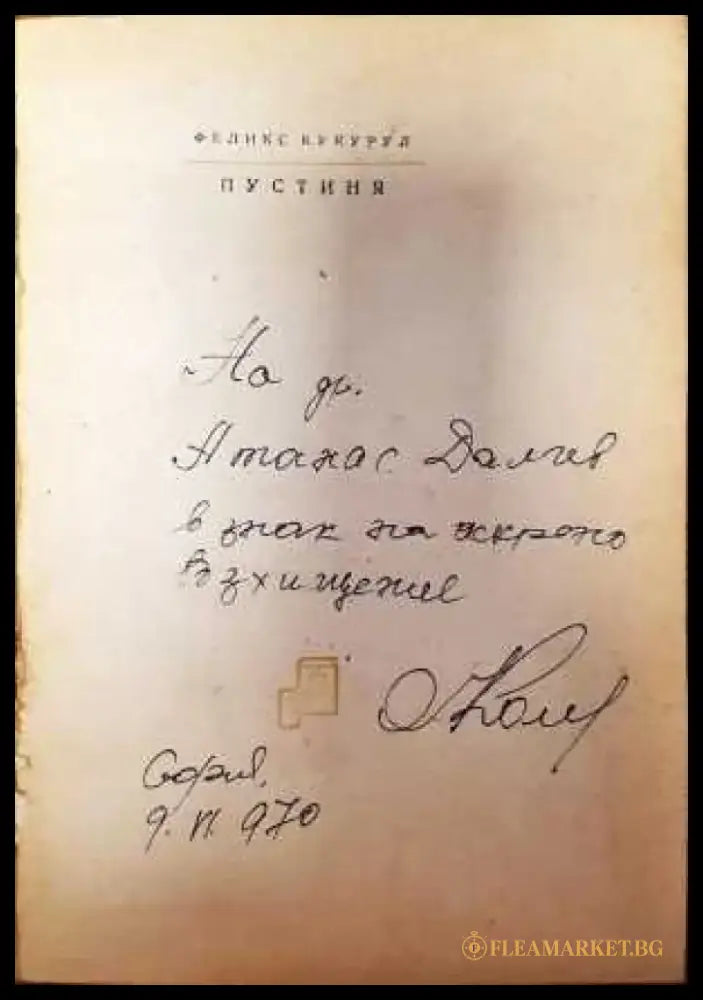 ФЕЛИКС КУКУРУЛ
ПУСТИНЯ
На др.
Атанас Далчев
в знак на искрено
възхищение
София,
9. VI. 970
FLEAMARKET.BG